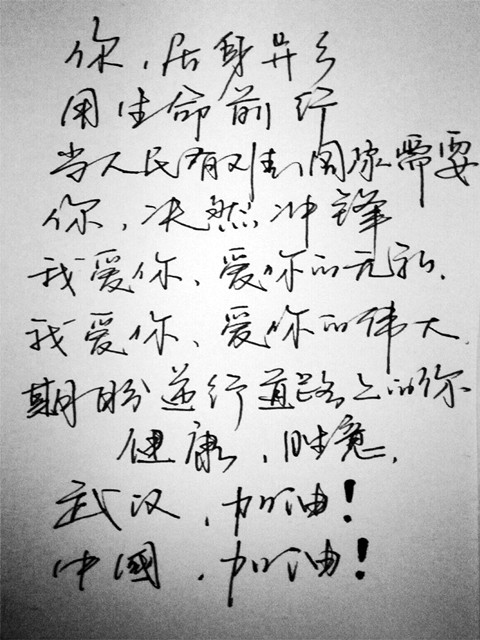 你，居身异乡
用生命前行
当人民有难国家需要
你，决然冲锋
我爱你、爱你的无私.
我爱你、爱你的伟大.
期盼逆行道路上的你
健康，胜意.
武汉，加油！
中國，加油！